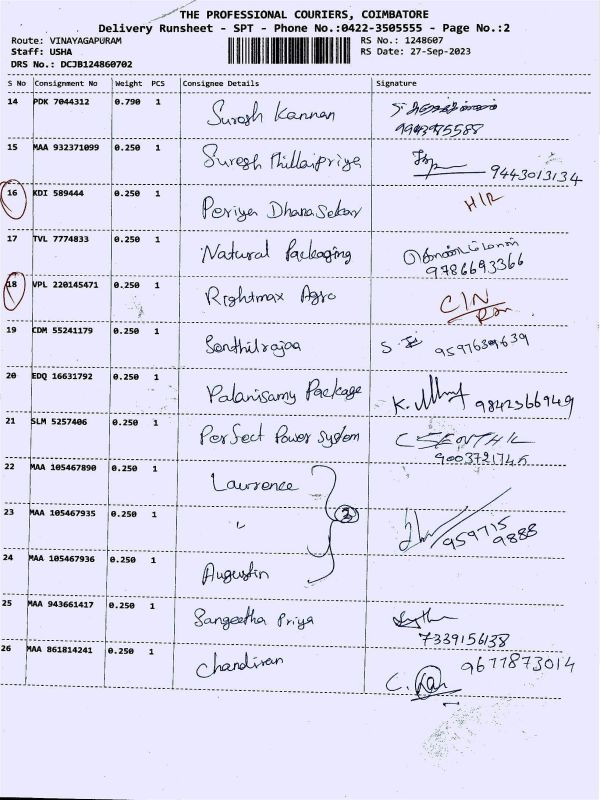 THE PROFESSIONAL COURIERS, COIMBATORE
Delivery Runsheet - SPT - Phone No.:0422-3505555 - Page No.:2
Route: VINAYAGAPURAM RS No.: 1248607
Staff: USHA RS Date: 27-Sep-2023
DRS No.: DCJB124860702
S No Consignment No Weight PCS Consignee Details Signature
14 PDK 7044312 0.790 1 Suresh Kannan
9943975588
15 MAA 932371099 0.250 1 Suresh Thillaipriya 9443013134
16 KDI 589444 0.250 1 Periya Dhanasekar H/R
17 TVL 7774833 0.250 1 Natural Packaging
9786693366
18 VPL 220145471 0.250 1 Rightmax Agro C/N
19 CDM 55241179 0.250 1 Senthilrajaa S. 9597639639
20 EDQ 16631792 0.250 1 Palanisamy Package K. 9842366949
21 SLM 5257406 0.250 1 Perfect Power System C SENTHIL
9003721745
22 MAA 105467890 0.250 1 Lawrence
23 MAA 105467935 0.250 1 " 3 959715
9888
24 MAA 105467936 0.250 1 Augustin
25 MAA 943661417 0.250 1 Sangeetha Priya
7339156138
26 MAA 861814241 0.250 1 Chandiran 9677873014
C.